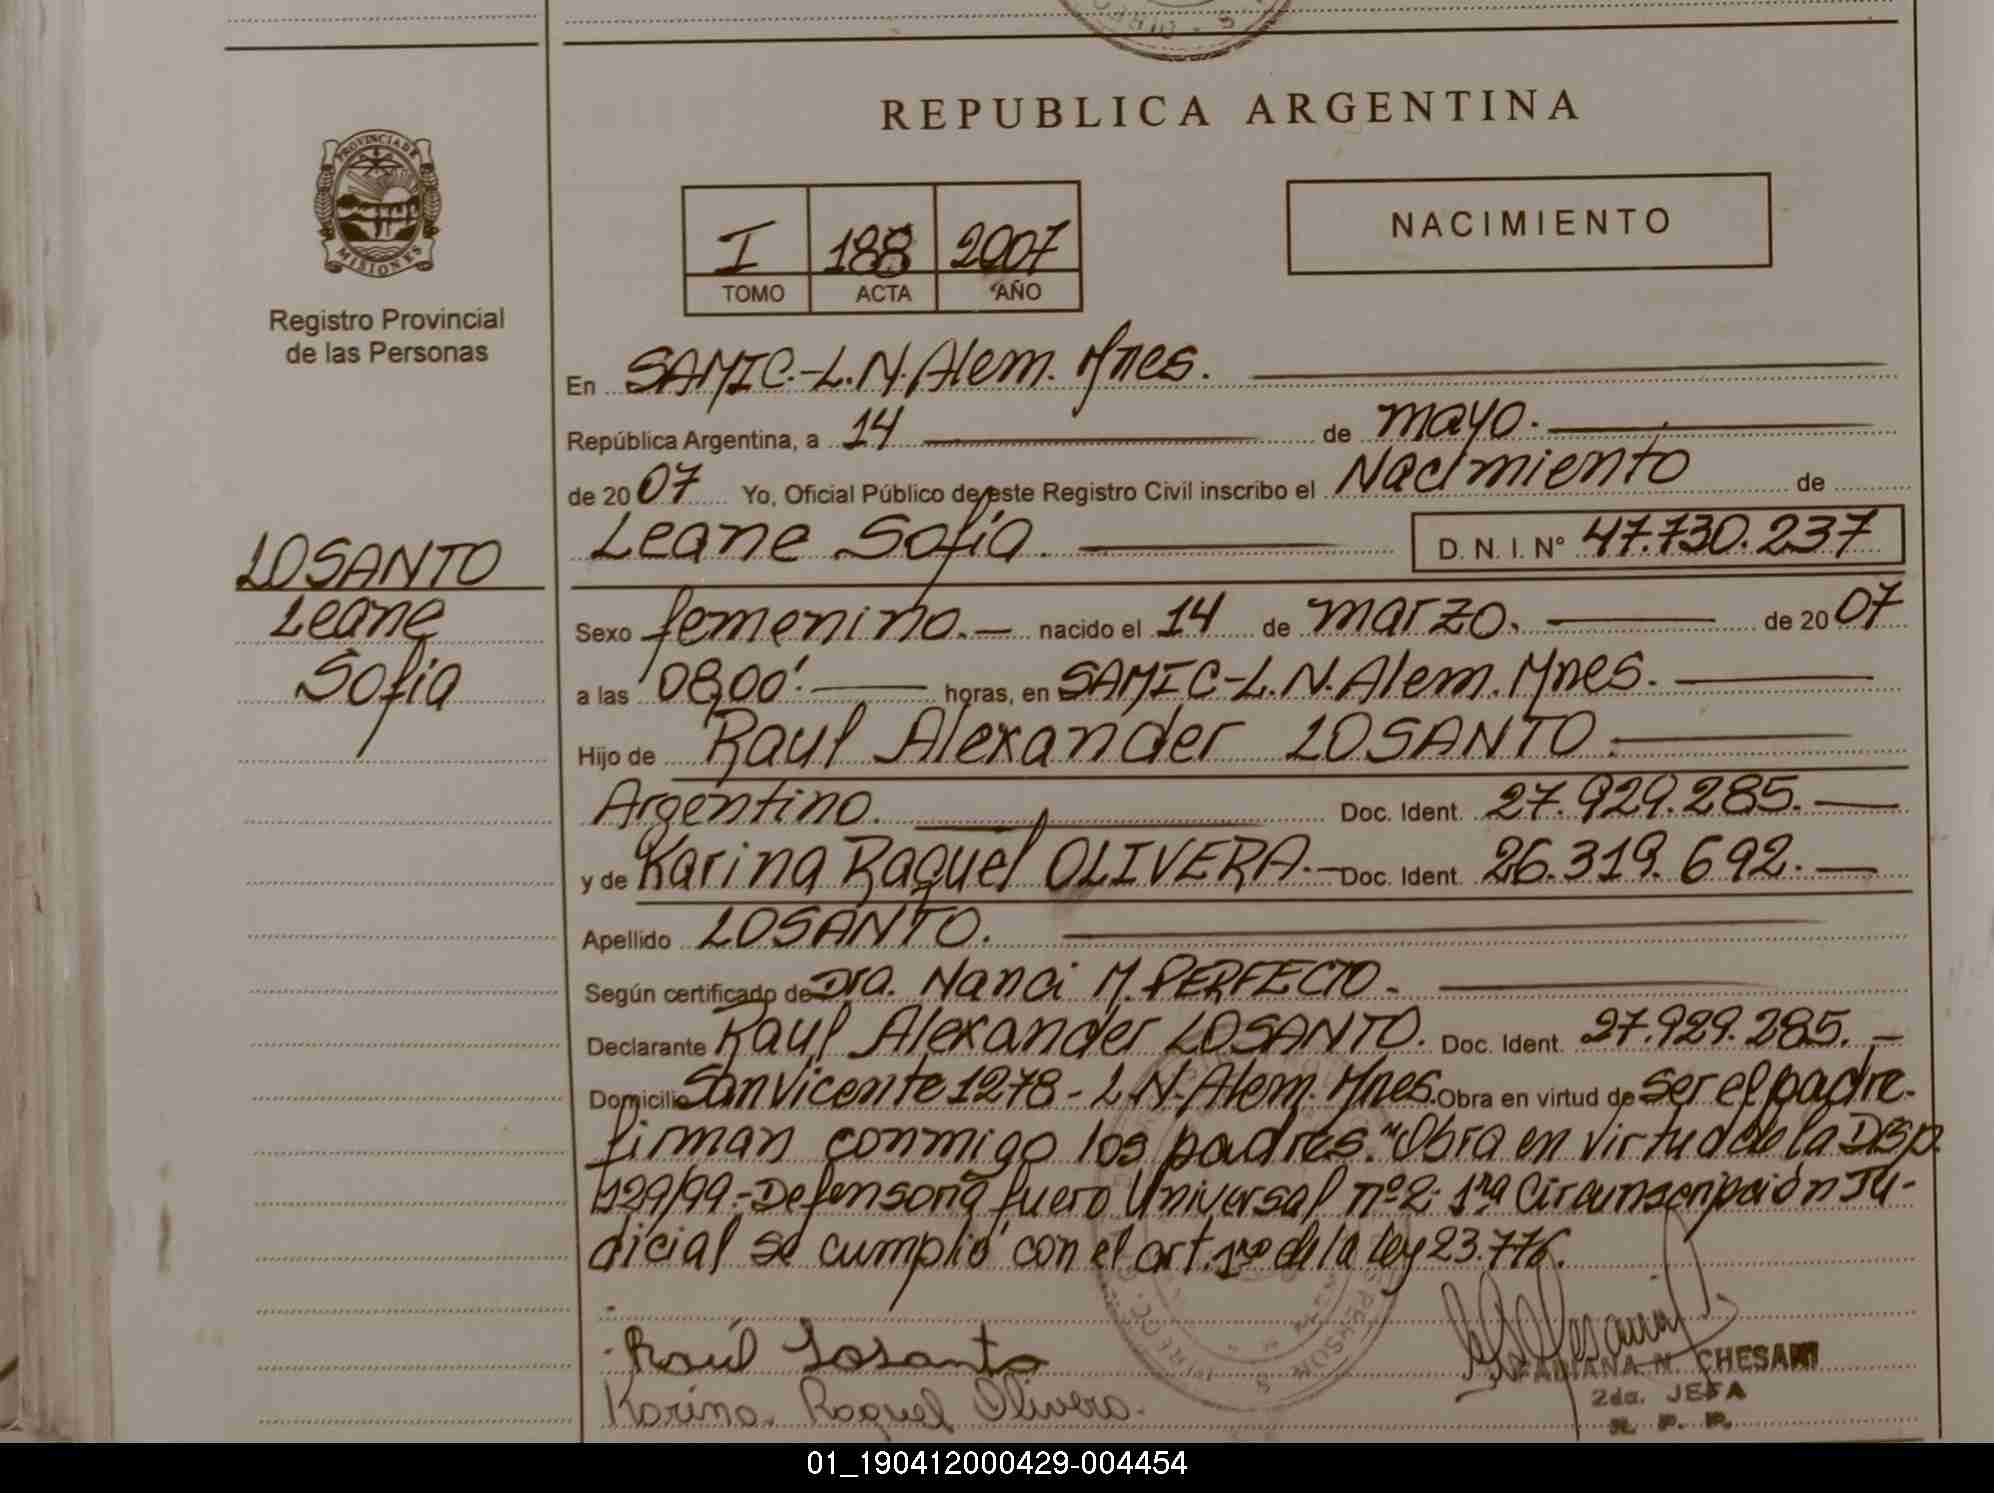 REPUBLICA ARGENTINA
PROVINCIA DE
MISIONES
Registro Provincial
de las Personas
I 188 2007
TOMO ACTA AÑO
NACIMIENTO
En SAMIC.-L.N.Alem. Mnes.
República Argentina, a 14 de mayo.
de 2007 Yo, Oficial Público de este Registro Civil inscribo el Nacimiento de
Leane Sofía. D. N. I. Nº 47.730.237
LOSANTO
Leane
Sofía
Sexo femenino.- nacido el 14 de marzo. de 2007
a las 08,00'. horas, en SAMIC-L.N.Alem.Mnes.
Hijo de Raul Alexander LOSANTO.
Argentino. Doc. Ident. 27.929.285.
y de Karina Raquel OLIVERA.- Doc. Ident. 26.319.692.
Apellido LOSANTO.
Según certificado de Dra. Nanci M. PERFECTO.
Declarante Raul Alexander LOSANTO. Doc. Ident. 27.929.285.-
Domicilio San Vicente 1278-L.N.Alem.Mnes. Obra en virtud de ser el padre.
firman conmigo los padres." Obra en virtud de la Disp.
129/99.-Defensoría fuero Universal nº2; 1ra Circunscripción Ju-
dicial se cumplió con el art. 1ro de la Ley 23.776.
Raúl Losanto
Karina. Raquel Olivera.
FABIANA N. CHESANI
2da. JEFA
R. P. P.
01_190412000429-004454